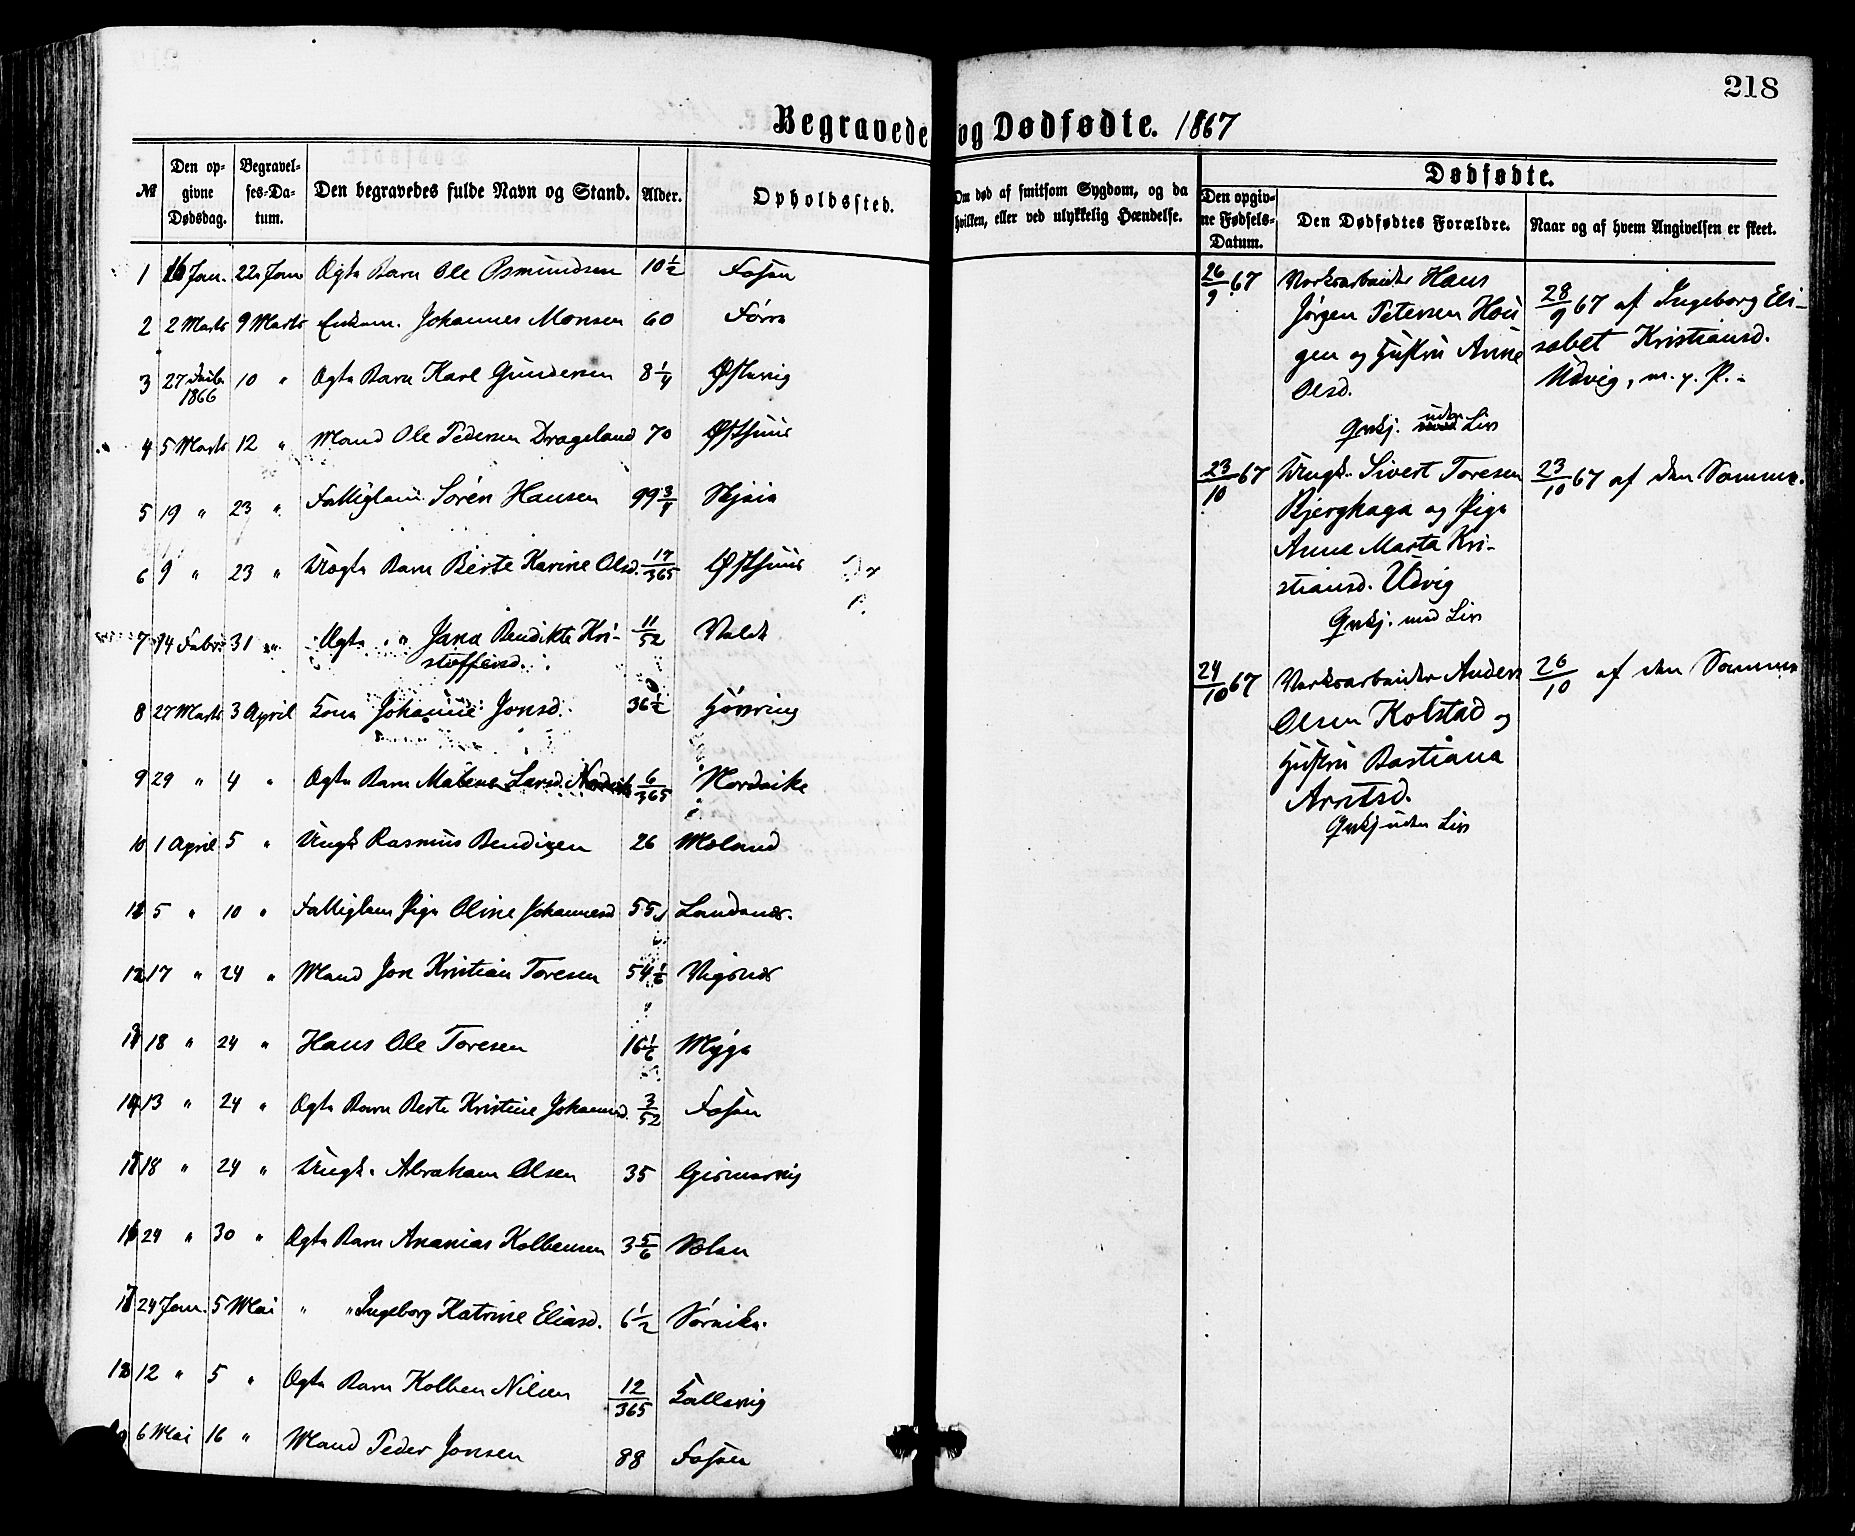 218
Begravede og Dødfødte. 1867
№
Den opgivne Dødsdag.
Begravelses-Datum.
Den begravedes fulde Navn og Stand.
Alder.
Opholdssted.
Om død af smitsom Sygdom, og da hvilken, eller ved ulykkelig Hændelse.
Dødfødte.
Den opgivne Fødsels-Datum.
Den Dødfødtes Forældre.
Naar og af hvem Angivelsen er skeet.
1 16 Jan. 22 Jan Ægte Barn Ole Osmundsen 10 1/2 Fosen
2 2 Marts 9 Marts Enkem. Johannes Monsen 60 Førre
3 27 1866 10 " Ægte Barn Karl Gundersen 8 1/4 Østevig
4 5 Marts 12 " Mand Ole Pedersen Drageland 70 Østhuus
5 19 " 23 " Fattiglem Søren Hansen 99 3/4
6 9 " 23 " Uægte Barn Berte Karine Olsd. 17/365 Østhuus
7 14 Febr 31 " Ægte " Jana Bendikte Kri-
stoffersd. 11/52 Valde
8 27 Marts 3 April Kone Johanne Jonsd. 36 1/2
9 29 " 4 " Ægte Barn Malene Larsd. Nordvik 6/365 Nordvike
10 1 April 5 " Ungk Rasmus Bendixen 26 Moland
11 5 " 10 " Fattiglem Pige Oline Johannesd 55 Landanes.
12 17 " 24 " Mand Jon Kristian Toresen 54 1/6 Vigsnes
13 18 " 24 " Hans Ole Toresen 16 1/6 Myge
14 13 " 24 " Ægte Barn Berte Kristine Johannesd. 3/52 Fosen
15 18 " 24 " Ungk. Abraham Olsen 35 Gismarvig
16 24 " 30 " Ægte Barn Ananias Kolbensen 3 5/6
17 24 Jan. 5 Mai " " Ingeborg Katrine Eliasd. 6 1/2 Sørvike.
18 12 " 5 " Ægte Barn Kolben Nilsen 12/365 Kallevig
6 Mai 16 " Mand Peder Jonsen 88 Fosen
26/9 67 Verksarbeider Hans
Jørgen Petersen Hau
gen og Hustru Anne
Olsd.
Gutkj. uden Liv
28/9 67 af Ingeborg Eli-
sabet Kristiansd.
Udvig, m. g. P.
23/10 67 Ungk. Sivert Toresen
Bjerghaga og Pige
Anne Marta Kri-
stiansd. Udvig
Gutkj. med Liv
23/10 67 af den Samme.
24/10 67 Verksarbeider Anders
Olsen Kolstad og
Hustru Bastiana
Arntsd.
Gutkj uden Liv
26/10 af den Samme